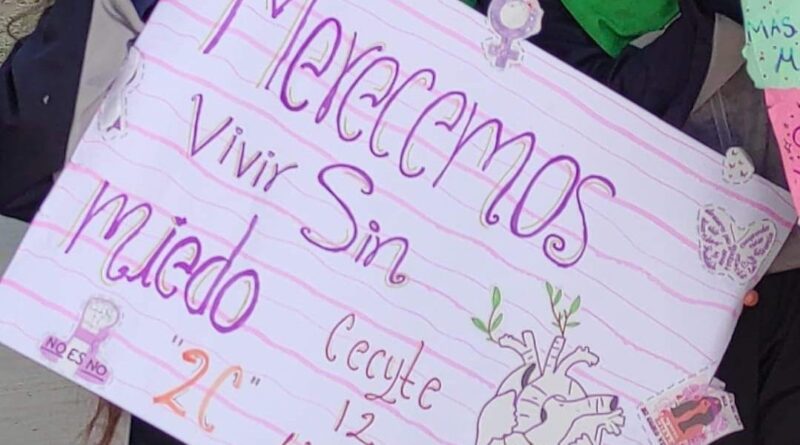 Merecemos
Vivir Sin
miedo
NO ES NO
"2C"
Cecyte
12
MAS
M